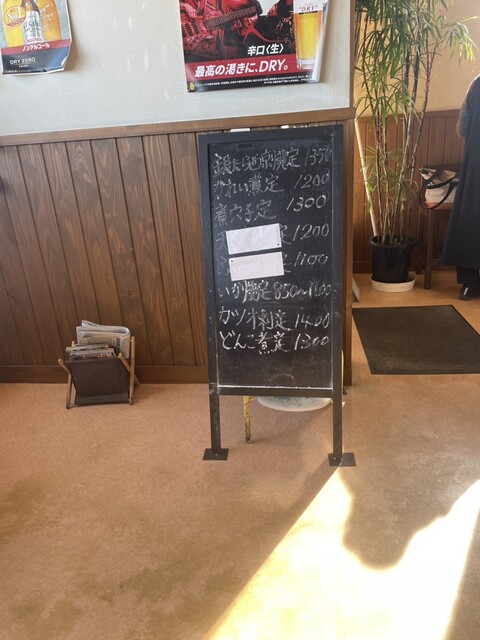 ノンアルコール
DRY ZERO
DRY
辛口〈生〉
最高の渇きに、DRY。
銀たら西京焼定 1350
かれい煮定 1200
煮穴子定 1300
定 1200
定 1100
カツオ刺定 1400
どんこ煮定 1300